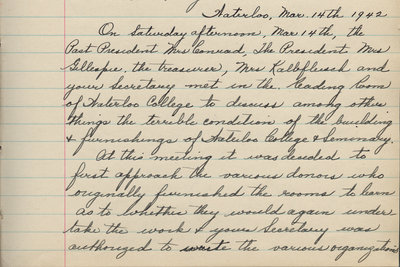 Waterloo, Mar. 14th 1942
On Saturday afternoon, Mar 14th, the
Past President Mrs Conrad, The President Mrs
Gillespie, the treasurer, Mrs Kalbfleisch and
your Secretary met in the Reading Room
of Waterloo College to discuss among other
things the terrible condition of the building
& furnishings of Waterloo College & Seminary.
At this meeting it was decided to
first approach the various donors who
originally furnished the rooms to learn
as to whether they would again under-
take the work & your Secretary was
authorized to write the various organizations